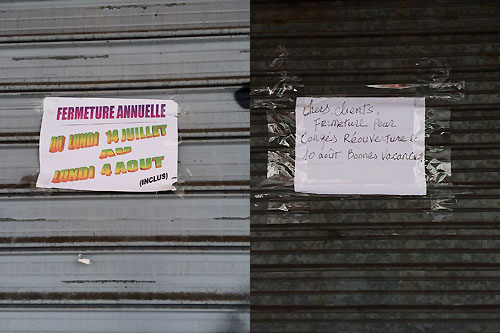 FERMETURE ANNUELLE
DU LUNDI 14 JUILLET
AU
LUNDI 4 AOUT
(INCLUS)
Chers Clients
Fermeture Pour
Congés Réouverture le
10 août Bonnes Vacances